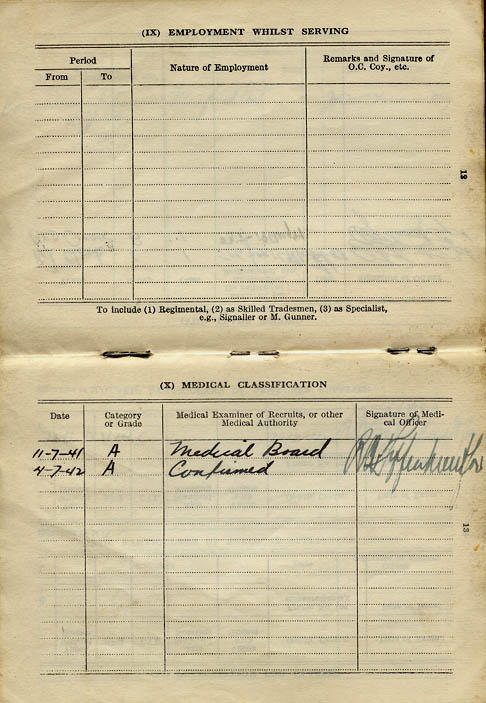 (IX) EMPLOYMENT WHILST SERVING
Period
From
To
Nature of Employment
Remarks and Signature of
O.C. Coy., etc.
12
To include (1) Regimental, (2) as Skilled Tradesmen, (3) as Specialist,
e.g., Signaller or M. Gunner.
(X) MEDICAL CLASSIFICATION
Date
Category
or Grade
Medical Examiner of Recruits, or other
Medical Authority
Signature of Medi-
cal Officer
11-7-41 A Medical Board
4-7-42 A Confirmed
13